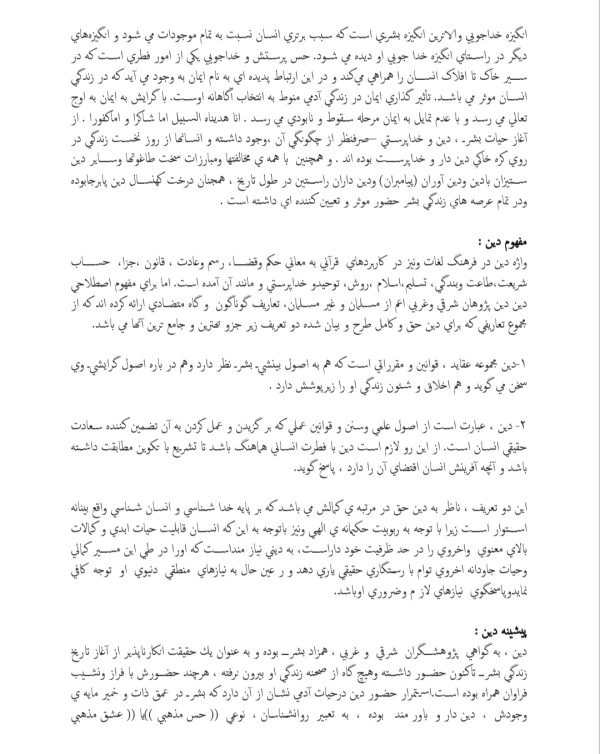 انگيزه خداجويي والاترين انگيزه بشري است که سبب برتري انسان نسبت به تمام موجودات مي شود و انگيزه‌هاي
ديگر در راستاي انگيزه خدا جويي او ديده مي شود. حس پرستش و خداجويي يکي از امور فطري است که در
سير خاک تا افلاک انسان را همراهي مي‌کند و در اين ارتباط پديده اي به نام ايمان به وجود مي آيد که در زندگي
انسان موثر مي باشد. تأثير گذاري ايمان در زندگي آدمي منوط به انتخاب آگاهانه اوست. با گرايش به ايمان به اوج
تعالي مي رسد و با عدم تمايل به ايمان مرحله سقوط و نابودي مي رسد . انا هديناه السبيل اما شاکرا و اماکفورا . از
آغاز حيات بشر ، دين و خداپرستي –صرفنظر از چگونگي آن ،وجود داشته و انسانها از روز نخست زندگي در
روي کره خاکي دين دار و خداپرست بوده اند . و همچنين با همه ي مخالفتها ومبارزات سخت طاغوتها وساير دين
ستيزان بادين ودين آوران (پيامبران) ودين داران راستين در طول تاريخ ، همچنان درخت کهنسال دين پابرجابوده
ودر تمام عرصه هاي زندگي بشر حضور موثر و تعيين کننده اي داشته است .
مفهوم دين :
واژه دين در فرهنگ لغات ونيز در کاربردهاي قرآني به معاني حکم وقضا، رسم وعادت ، قانون ،جزا، حساب
شريعت،طاعت وبندگي، تسليم،اسلام ،روش، توحيدو خداپرستي و مانند آن آمده است. اما براي مفهوم اصطلاحي
دين دين پژوهان شرقي وغربي اعم از مسلمان و غير مسلمان، تعاريف گوناگون و گاه متضادي ارائه کرده اند که از
مجموع تعاريفي که براي دين حق و کامل طرح و بيان شده دو تعريف زير جزو بهترين و جامع ترين آنها مي باشد.
۱-دين مجموعه عقايد ، قوانين و مقرراتي است که هم به اصول بينشي بشر نظر دارد وهم در باره اصول گرايشي وي
سخن مي گويد و هم اخلاق و شئون زندگي او را زيرپوشش دارد .
۲- دين ، عبارت است از اصول علمي وسنن و قوانين عملي که بر گزيدن و عمل کردن به آن تضمين کننده سعادت
حقيقي انسان است. از اين رو لازم است دين با فطرت انساني هماهنگ باشد تا تشريع با تکوين مطابقت داشته
باشد و آنچه آفرينش انسان اقتضاي آن را دارد ، پاسخ گويد.
اين دو تعريف ، ناظر به دين حق در مرتبه ي کمالش مي باشد که بر پايه خدا شناسي و انسان شناسي واقع بينانه
استوار است زيرا با توجه به ربوبيت حکيمانه ي الهي ونيز باتوجه به اين که انسان قابليت حيات ابدي و کمالات
بالاي معنوي واخروي را در حد ظرفيت خود داراست، به ديني نياز منداست که اورا در طي اين مسير کمالي
وحيات جاودانه اخروي توام با رستگاري حقيقي ياري دهد و ر عين حال به نيازهاي منطقي دنيوي او توجه کافي
نمايدوپاسخگوي نيازهاي لاز م وضروري اوباشد.
پيشينه دين :
دين ، به گواهي پژوهشگران شرقي و غربي ، همزاد بشر بوده و به عنوان يك حقيقت انکارناپذير از آغاز تاريخ
زندگي بشر تأکنون حضور داشته وهيچ گاه از صحنه زندگي او بيرون نرفته ، هرچند حضورش با فراز ونشيب
فراوان همراه بوده است.استمرار حضور دين درحيات آدمي نشان از آن دارد که بشر در عمق ذات و خمير مايه ي
وجودش ، دين دار و باور مند بوده ، به تعبير روانشناسان ، نوعي (( حس مذهبي ))يا (( عشق مذهبي